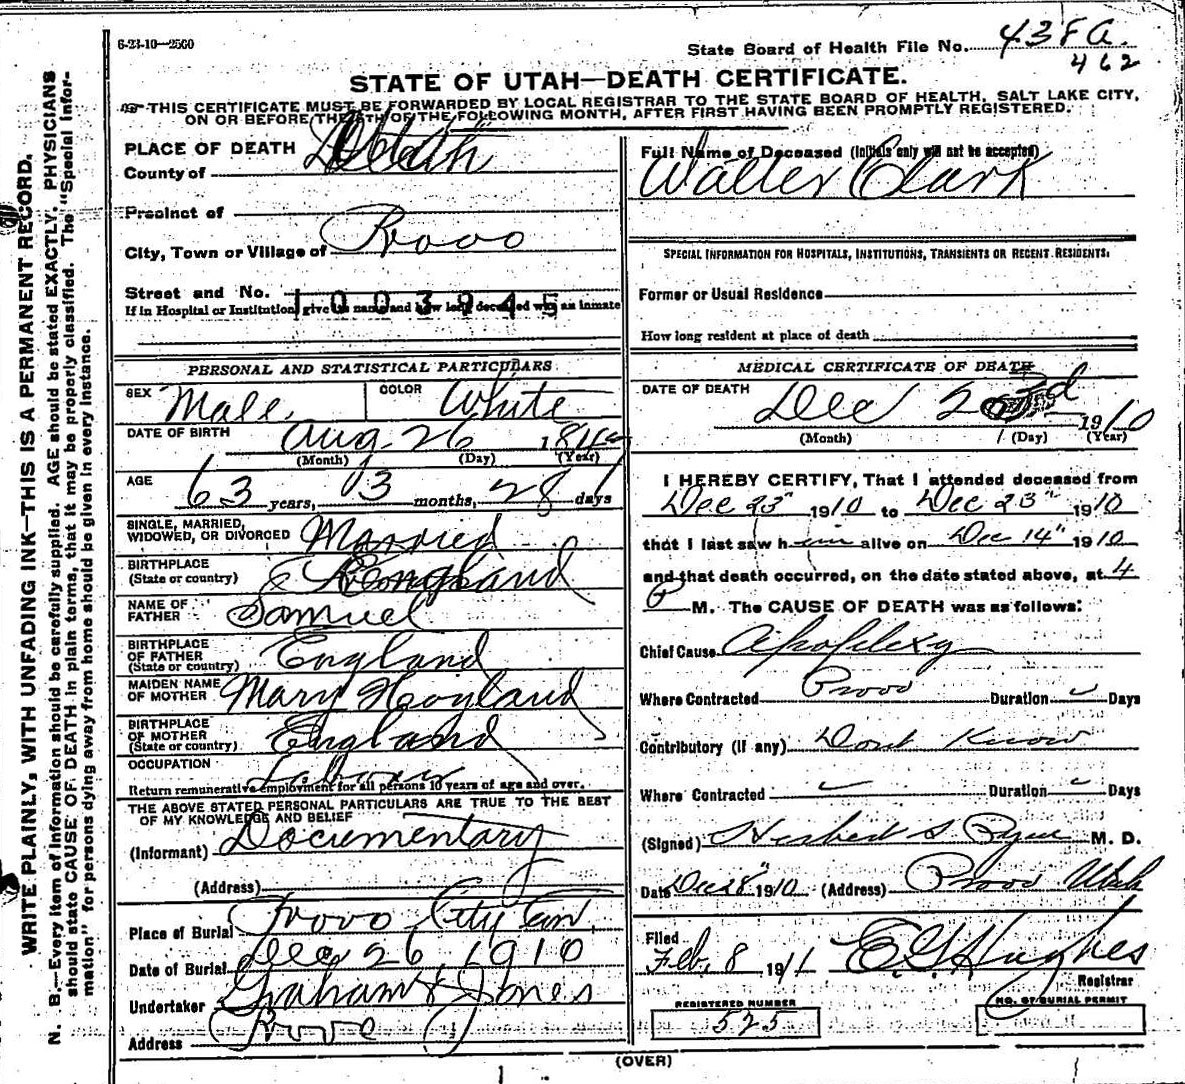 6-23-10—2500
State Board of Health File No. 43 F A.
462
STATE OF UTAH—DEATH CERTIFICATE.
THIS CERTIFICATE MUST BE FORWARDED BY LOCAL REGISTRAR TO THE STATE BOARD OF HEALTH, SALT LAKE CITY,
ON OR BEFORE THE 5TH OF THE FOLLOWING MONTH, AFTER FIRST HAVING BEEN PROMPTLY REGISTERED.
WRITE PLAINLY, WITH UNFADING INK—THIS IS A PERMANENT RECORD.
N. B.—Every item of information should be carefully supplied. AGE should be stated EXACTLY. PHYSICIANS
should state CAUSE OF DEATH in plain terms, that it may be properly classified. The "Special Infor-
mation" for persons dying away from home should be given in every instance.
PLACE OF DEATH
County of Utah
Precinct of
City, Town or Village of Provo
Street and No.
1003945
If in Hospital or Institution, give its name and how long deceased was an inmate
PERSONAL AND STATISTICAL PARTICULARS
SEX Male COLOR White
DATE OF BIRTH Aug 26 184
(Month) (Day) (Year)
AGE 63 years, 3 months, 28 days
SINGLE, MARRIED,
WIDOWED, OR DIVORCED Married
BIRTHPLACE
(State or country) England
NAME OF
FATHER Samuel
BIRTHPLACE
OF FATHER
(State or country) England
MAIDEN NAME
OF MOTHER Mary Hoyland
BIRTHPLACE
OF MOTHER
(State or country) England
OCCUPATION Laborer
Return remunerative employment for all persons 10 years of age and over.
THE ABOVE STATED PERSONAL PARTICULARS ARE TRUE TO THE BEST
OF MY KNOWLEDGE AND BELIEF
(Informant) Documentary
(Address)
Place of Burial Provo City Cem.
Date of Burial Dec 26 1910
Undertaker Graham & Jones
Address Provo
Full Name of Deceased (Initials only will not be accepted)
Walter Clark
SPECIAL INFORMATION FOR HOSPITALS, INSTITUTIONS, TRANSIENTS OR RECENT RESIDENTS.
Former or Usual Residence
How long resident at place of death
MEDICAL CERTIFICATE OF DEATH
DATE OF DEATH Dec 23d 1910
(Month) (Day) (Year)
I HEREBY CERTIFY, That I attended deceased from
Dec 23" 1910 to Dec 23" 1910
that I last saw him alive on Dec 14" 1910
and that death occurred, on the date stated above, at 4
P M. The CAUSE OF DEATH was as follows:
Chief Cause Apoplexy
Where Contracted Provo Duration Days
Contributory (if any) Dont Know
Where Contracted Duration Days
(Signed) Herbert S Pyne M. D.
Date Dec 28" 1910 (Address) Provo Utah
Filed
Feb, 8 1911 E G Hughes
Registrar
REGISTERED NUMBER
525
NO. OF BURIAL PERMIT
(OVER)